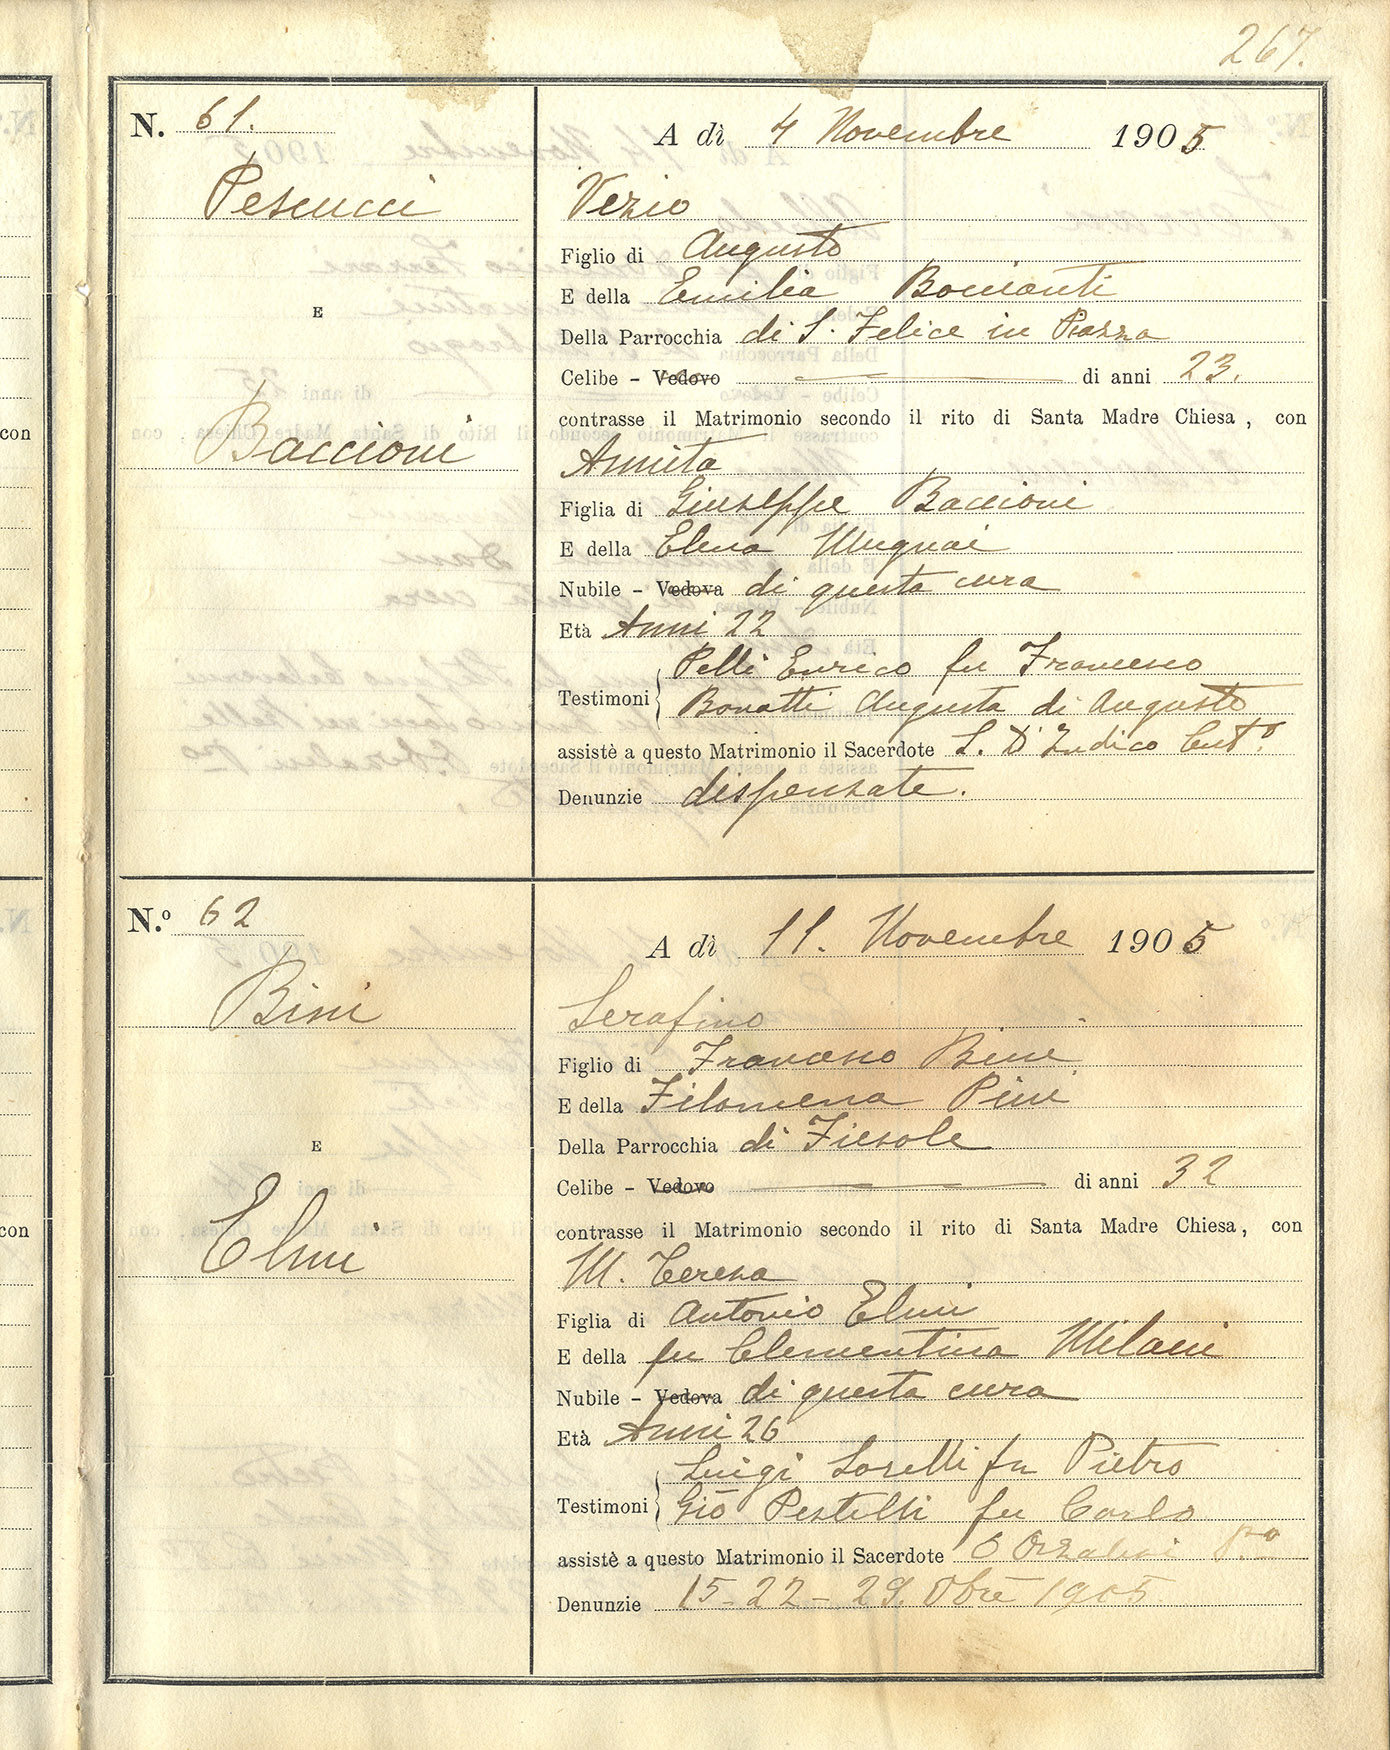 267.
N. 61.
A dì 4 Novembre 1905
Pescucci
Vezio
Figlio di Augusto
E della Emilia Bocianti
E
Della Parrocchia di S. Felice in Piazza
Celibe - Vedovo di anni 23.
contrasse il Matrimonio secondo il rito di Santa Madre Chiesa, con
Baccioni
Annita
Figlia di Giuseppe Baccioni
E della Elena Mugnai
Nubile - Vedova di questa cura
Età Anni 22
Pelli Enrico fu Francesco
Testimoni
Bonatti Augusta di Augusto
assistè a questo Matrimonio il Sacerdote S. D'Indico
Denunzie dispensate.
N.º 62
A dì 11. Novembre 1905
Bini
Serafino
Figlio di Francesco Bini
E della Filomena Pini
Della Parrocchia di Fiesole
E
Celibe - Vedovo di anni 32
contrasse il Matrimonio secondo il rito di Santa Madre Chiesa, con
Elmi
M. Teresa
Figlia di Antonio Elmi
E della fu Clementina Milani
Nubile - Vedova di questa cura
Età Anni 26
Luigi Sorelli fu Pietro
Testimoni
Gio Pestelli fu Carlo
assistè a questo Matrimonio il Sacerdote O Orzalesi
Denunzie 15 - 22 - 29. Obre 1905
con
con